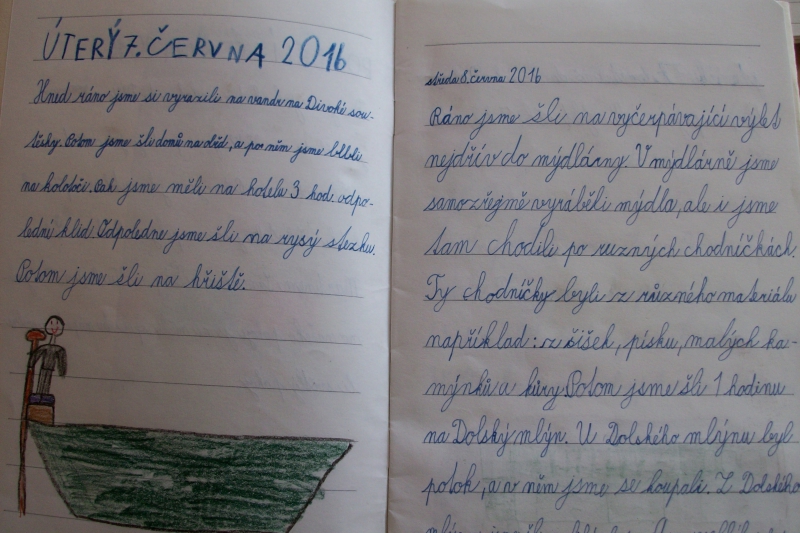 ÚTERÝ 7. ČERVNA 2016
Hned ráno jsme si vyrazili na vandr na Divoké sou-
těsky. Potom jsme šli domů na oběd, a po něm jsme blbli
na kolotoči. Pak jsme měli na hotelu 3 hod. odpo-
lední klid. Odpoledne jsme šli na rysý stezku.
Potom jsme šli na hřiště.
středa 8. června 2016
Ráno jsme šli na vyčerpávající výlet
nejdřív do mýdlárny. V mýdlárně jsme
samozřejmě vyráběli mýdla, ale i jsme
tam chodili po ruzných chodníčkách.
Ty chodníčky byli z různého materiálu
například: z šišek, písku, malých ka-
mýnků a kůry. Potom jsme šli 1 hodinu
na Dolský mlýn. U Dolského mlýnu byl
potok, a v něm jsme se koupali. Z Dolského